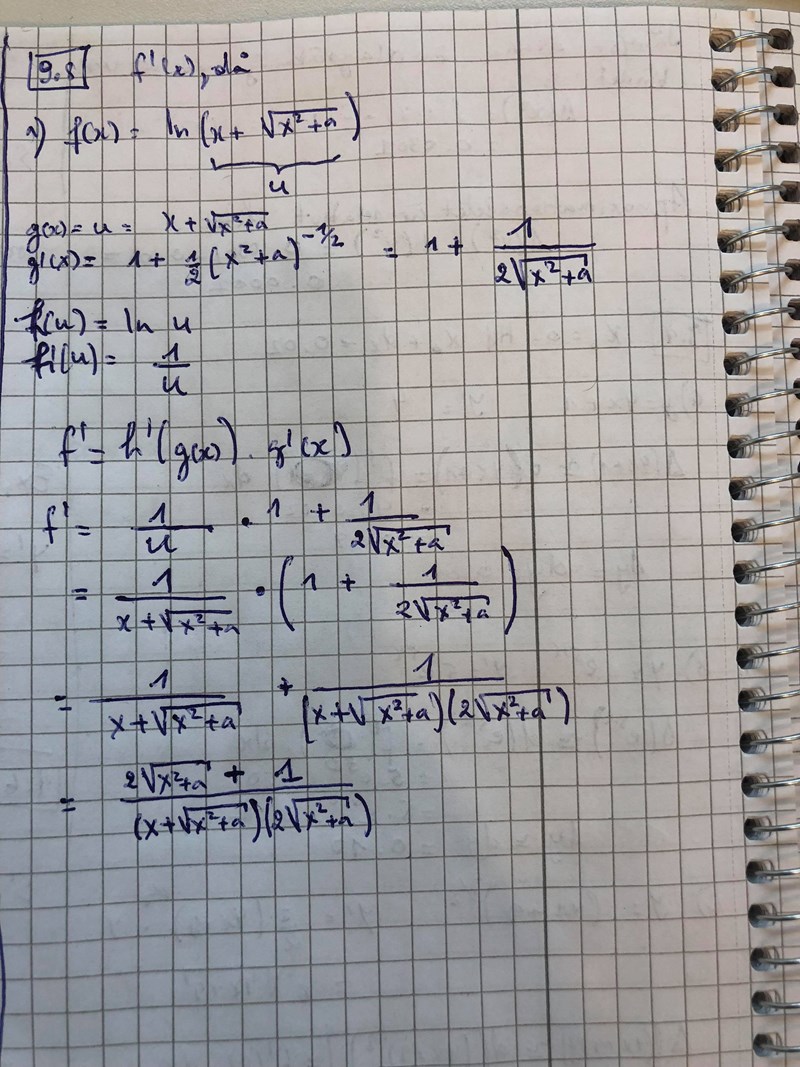 9.8 f'(x), då
a) f(x) = ln(x + √(x²+a))
u
g(x) = u = x + √(x²+a)
g'(x) = 1 + 1/2 (x²+a)^(-1/2) = 1 + 1/(2√(x²+a))
h(u) = ln u
h'(u) = 1/u
f' = h'(g(x)) · g'(x)
f' = 1/u · 1 + 1/(2√(x²+a))
= 1/(x+√(x²+a)) · (1 + 1/(2√(x²+a)))
= 1/(x+√(x²+a)) + 1/((x+√(x²+a))(2√(x²+a)))
= (2√(x²+a) + 1)/((x+√(x²+a))(2√(x²+a)))